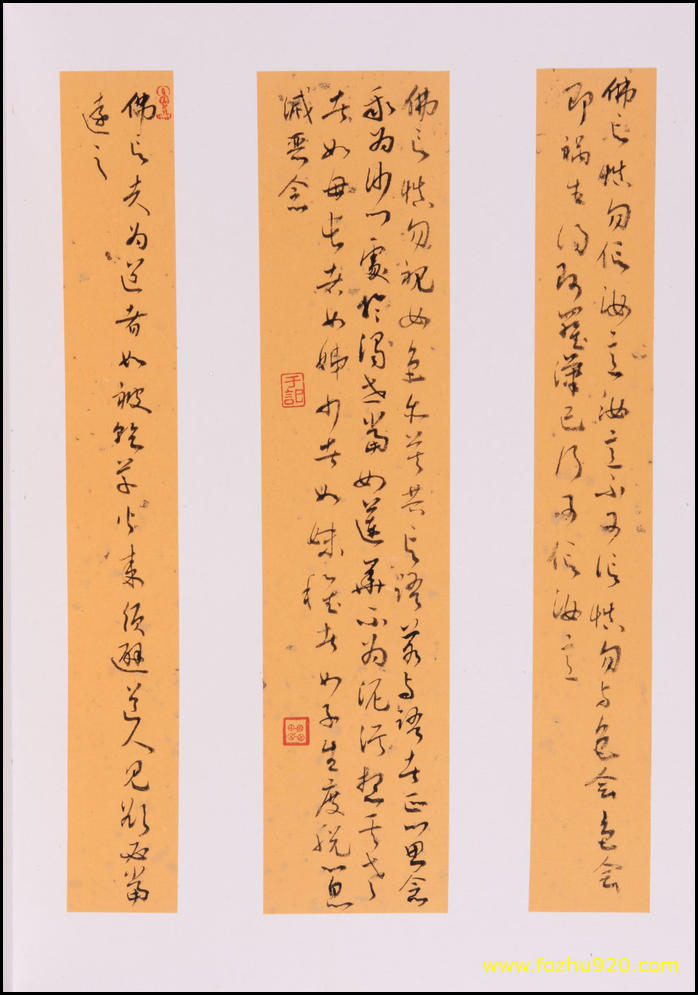 佛言慎勿信汝意汝意不可信慎勿与色会色会
即祸生得阿羅漢已乃可信汝意
佛言慎勿視女色亦莫共言語若与語者正心思念
我为沙门處於濁世當如蓮華不为泥污想其老
者如母长者如姊少者如妹稚者如子生度脱心息
滅恶念
于記
佛言夫为道者如被乾草火来须避道人见欲必當
遠之
www.fozhu920.com